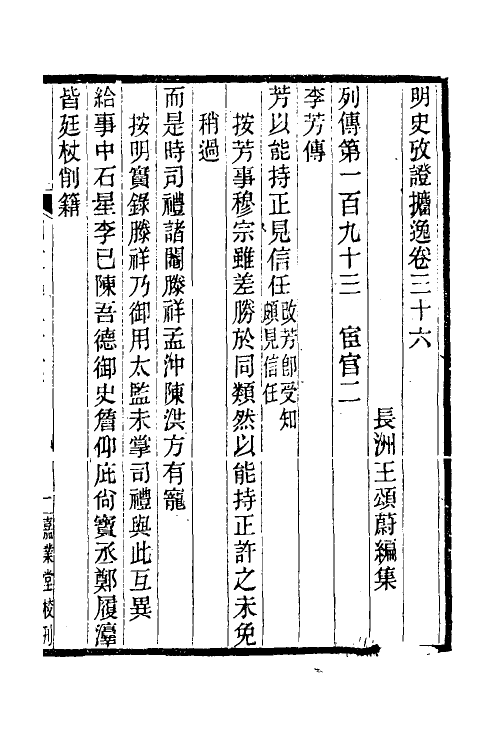 明史攷證攟逸卷三十六
長洲王頌蔚編集
列傳第一百九十三　宦官二
李芳傳
芳以能持正見信任改芳卽受知
頗見信任
按芳事穆宗雖差勝於同類然以能持正許之未免
稍過
而是時司禮諸閹滕祥孟沖陳洪方有寵
按明實錄滕祥乃御用太監未掌司禮與此互異
給事中石星李已陳吾德御史詹仰庇尙寶丞鄭履淳
皆廷杖削籍
一嘉業堂校刊